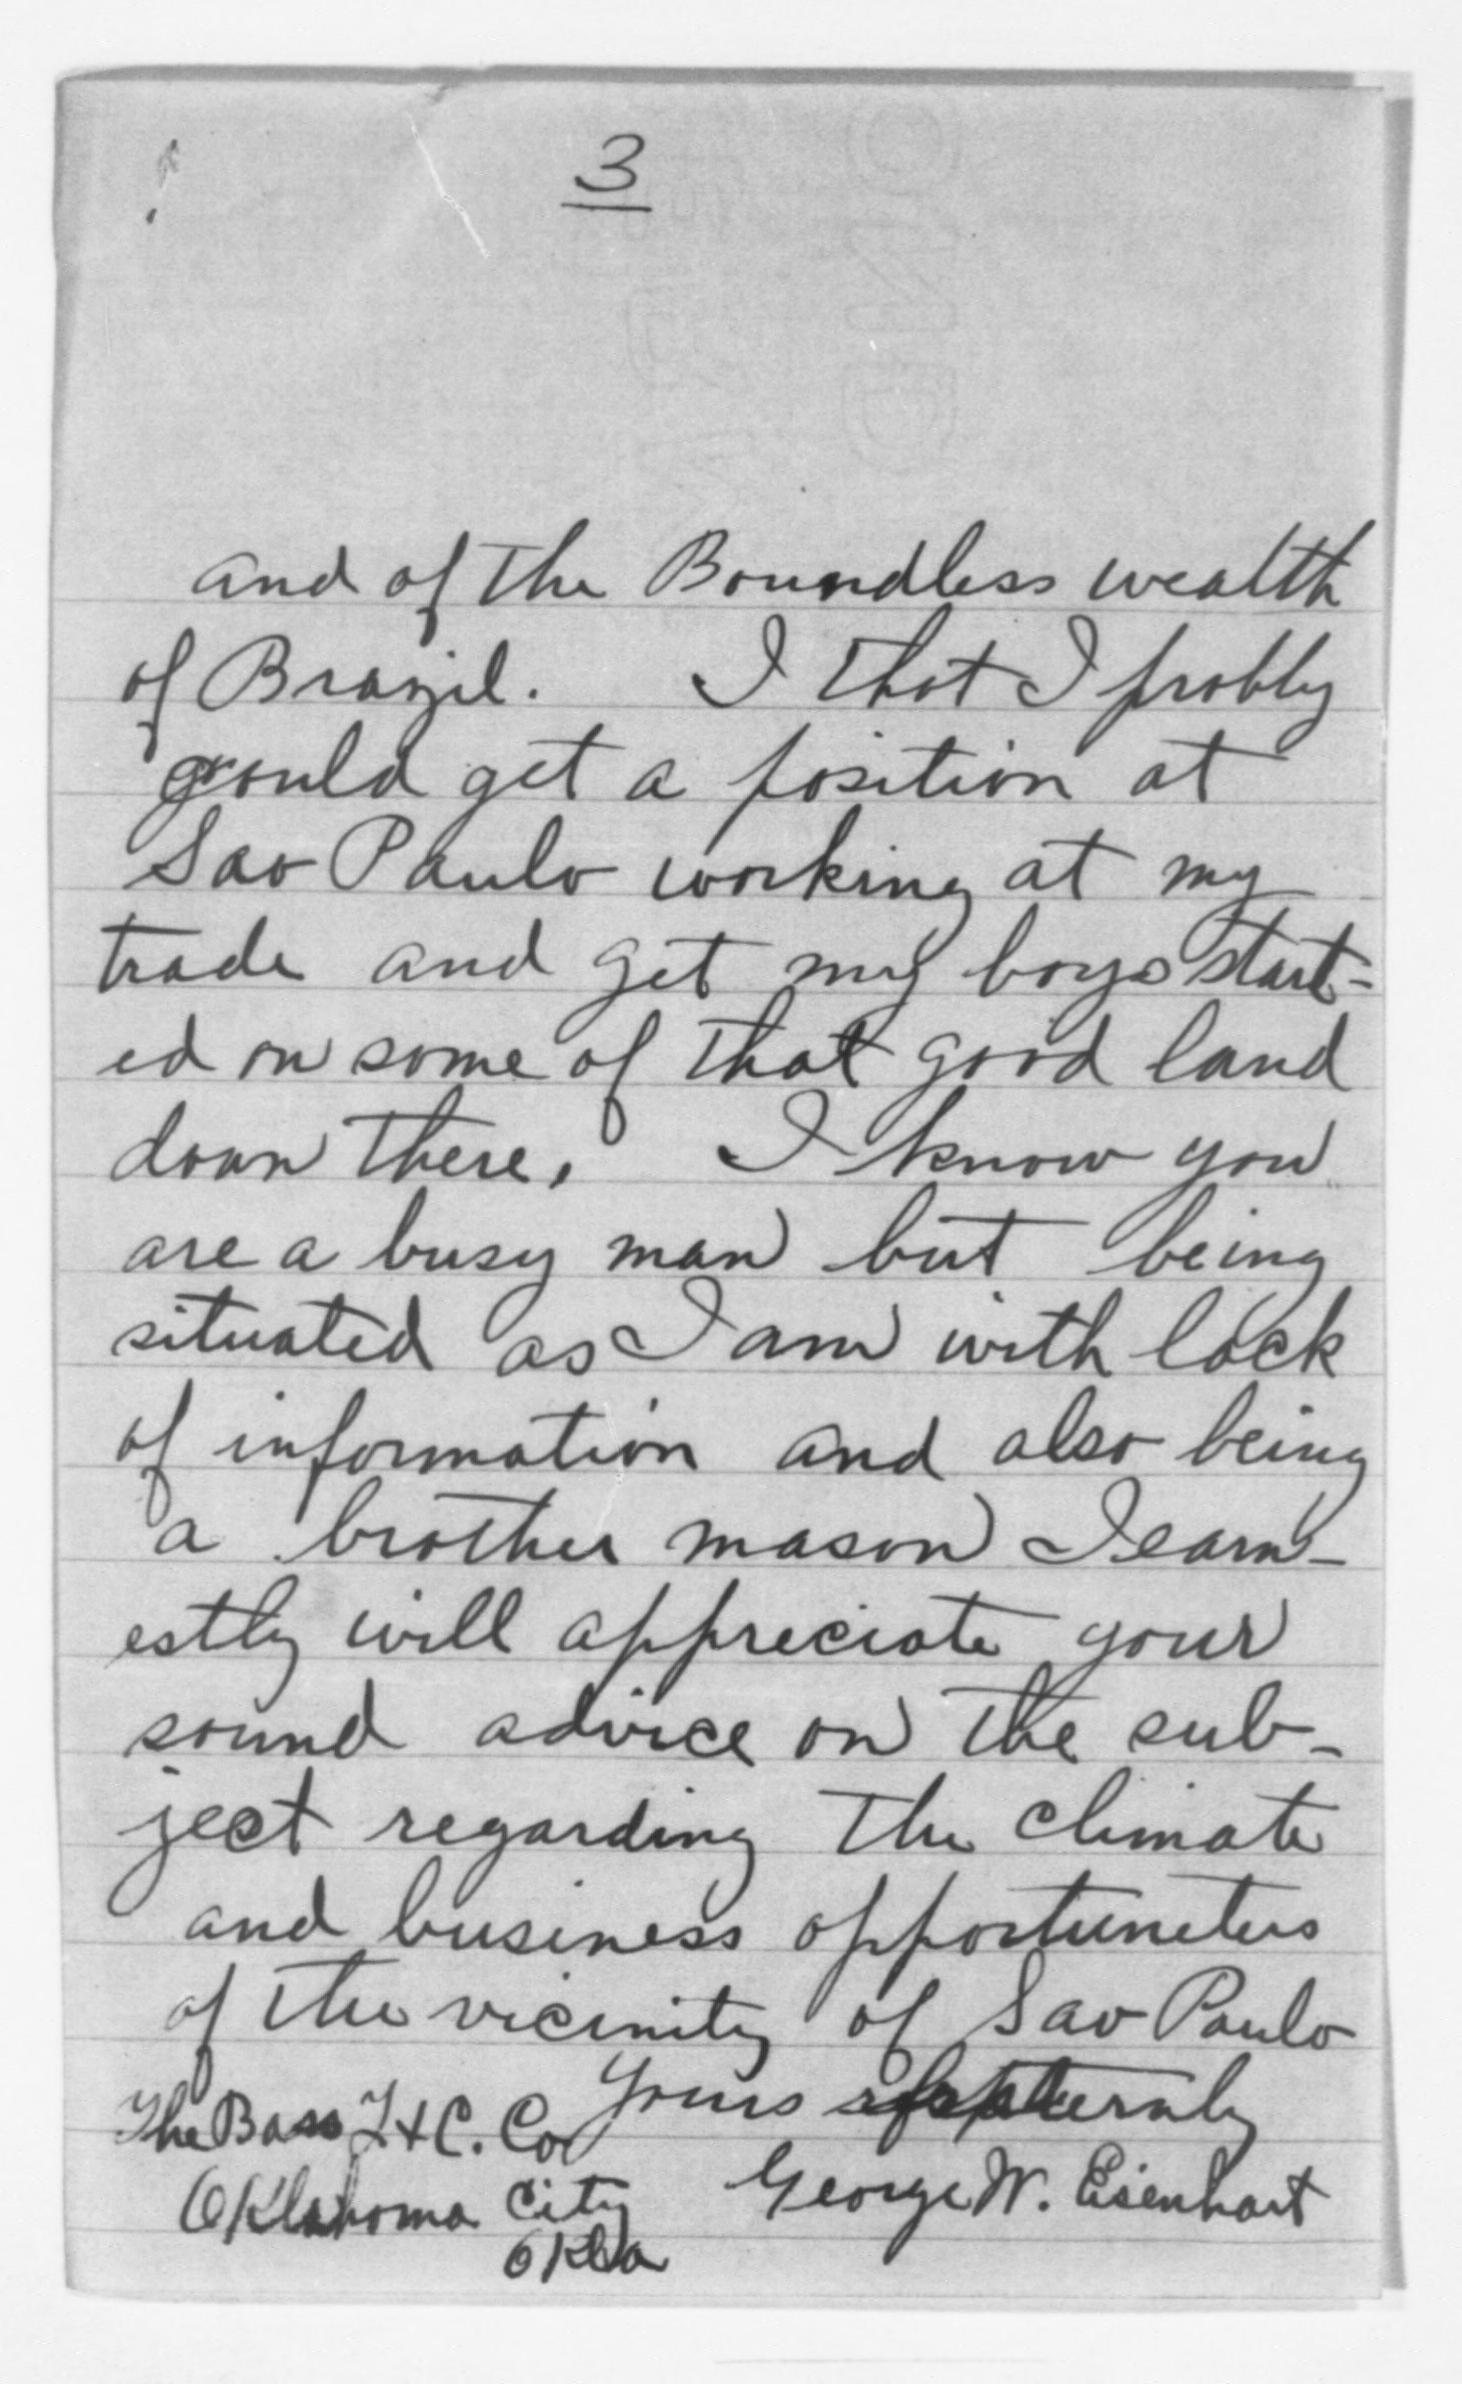 3
and of the Boundless wealth
of Brazil. I that I probbly
could get a position at
Sao Paulo working at my
trade and get my boys start-
ed on some of that good land
down there. I know you
are a busy man but being
situated as I am with lack
of information and also being
a brother mason I earn-
estly will appreciate your
sound advice on the sub-
ject regarding the climate
and business opportuneties
of the vicinity of Sao Paulo
Yours fraternly
The Bass F & C. Co
George W. Eisenhart
Oklahoma City
Okla